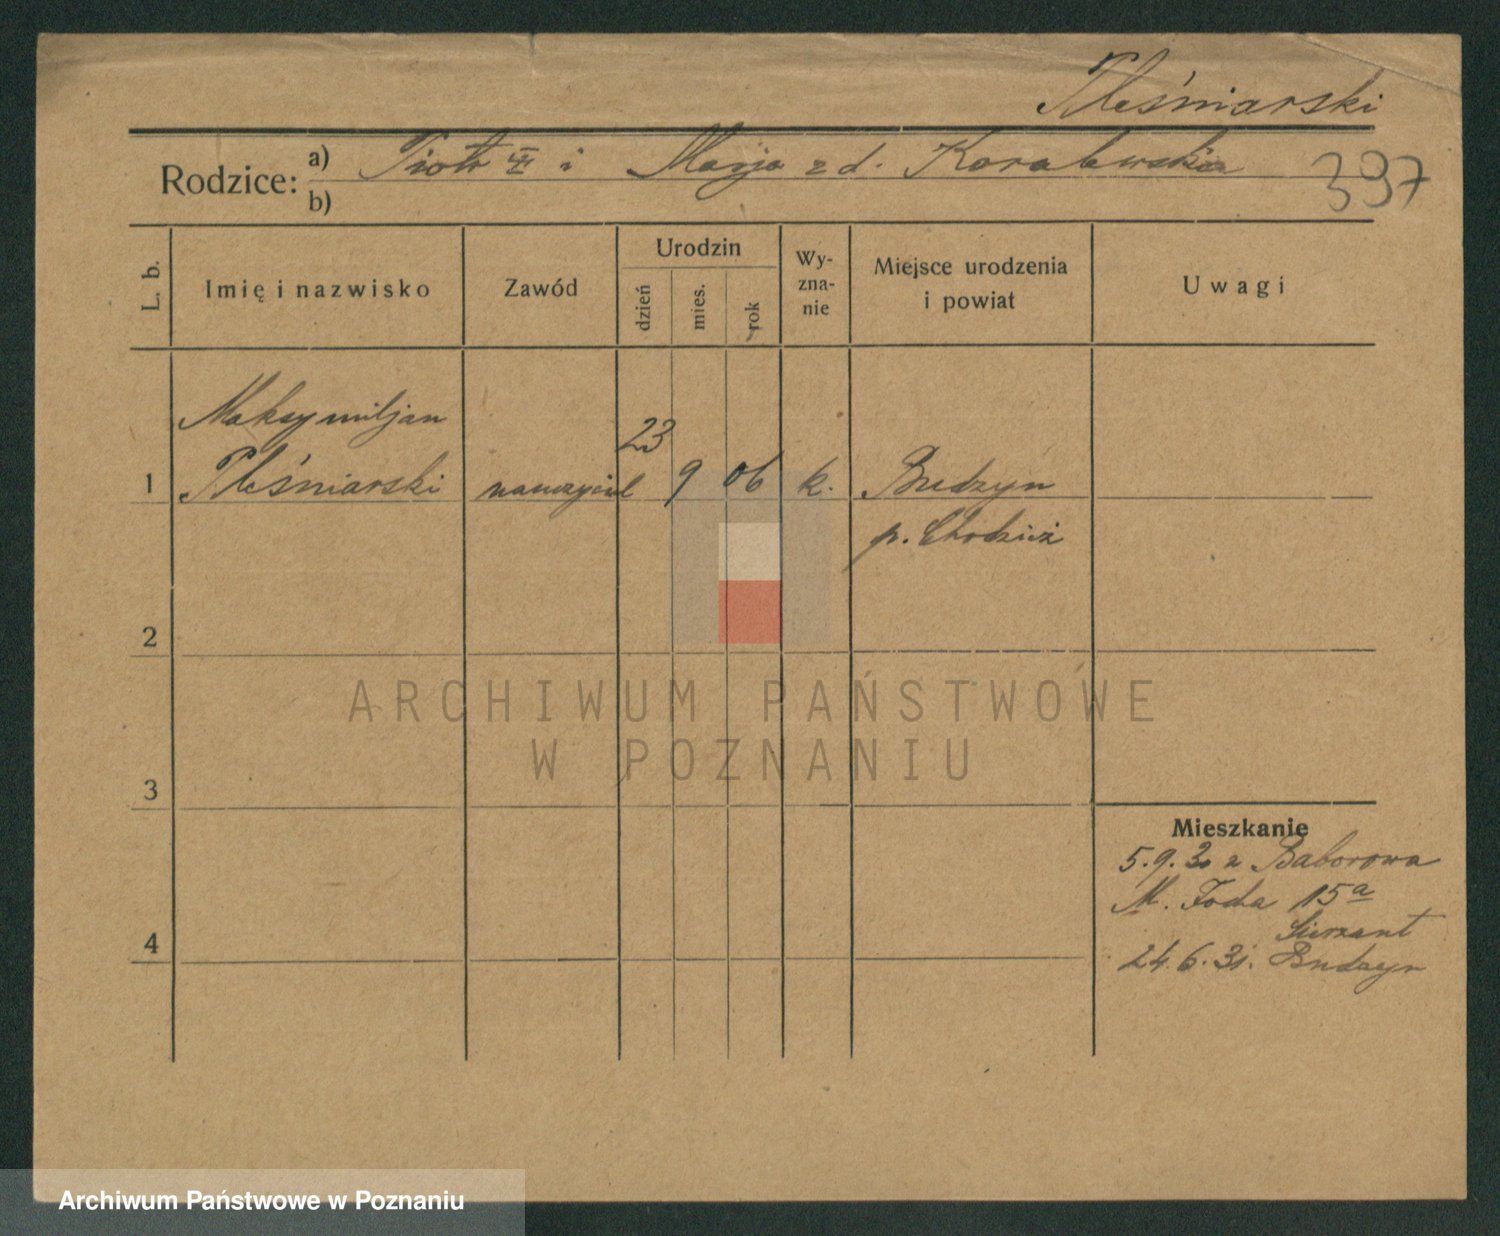 Pleśniarski
Rodzice: a) Piotr i Marja z d. Koralewska
b)
397
L. b.
Imię i nazwisko
Zawód
Urodzin
dzień
mies.
rok
Wy-
zna-
nie
Miejsce urodzenia
i powiat
Uwagi
Maksymiljan
1 Pleśniarski nauczyciel 23 9 06 k. Budzyn
p. Chodzież
2
ARCHIWUM PAŃSTWOWE
W POZNANIU
3
Mieszkanie
5.9.30 z Baborowa
M. Focha 15a
Sierzant
4
24.6.31. Budzyn
Archiwum Państwowe w Poznaniu